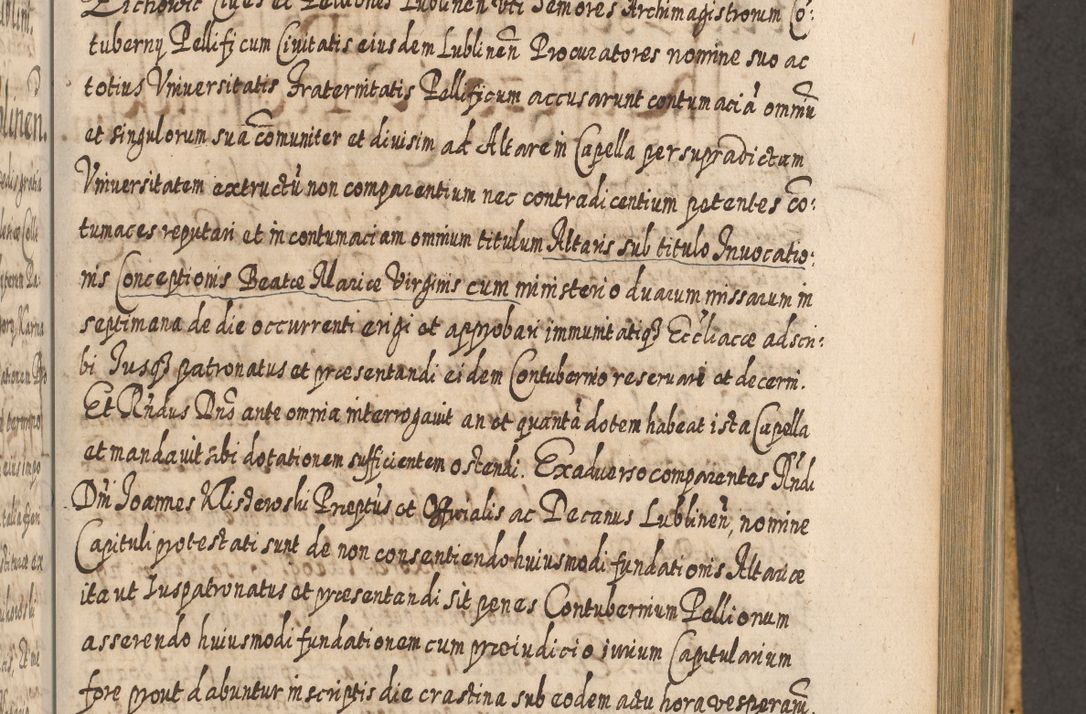 Zichowic Cives et Pelliones Lublinen vti Seniores Archimagistrorum Co:
tuberny Pellificum Civitatis eiusdem Lublinen Procuratores nomine suo ac
totius Vniuersitatis Fraternitatis Pellificum accusarunt contumaciã omniũ
et singulorum sua com̄uniter et diuisim ad Altare in Capella per supradictam
Vniuersitatem extructũ non comparentium nec contradicentium petentes cō:
tumaces reputari et in contumaciam omnium titulum Altaris sub titulo Inuocatio:
nis Conceptionis Beatæ Mariæ Virginis cum ministerio duarum missarum in
septimana de die occurrenti erigi et approbari immunitatiq3 Eccl̃iacæ adscri:
bi Iusq3 patronatus et præsentandi eidem Contubernio reseruari et decerni.
Et Rñdus Dñs ante omnia interrogauit an et quantã dotem habeat ista Capella
et mandauit sibi dotationem sufficientem ostendi. Exaduerso comparentes Rñdi
Dñi Ioannes Klisdewski Præptus et Officialis ac Decanus Lublinen, nomine
Capituli protestati sunt de non consentiendo huiusmodi fundationis Altariæ
ita vt Iuspatronatus et præsentandi sit penes Contubernium Pellionum
asserendo huiusmodi fundationem cum præiudicio iurium Capitularium
fore prout dabuntur in scriptis die crastina sub eodem actu hora vesperarũ.